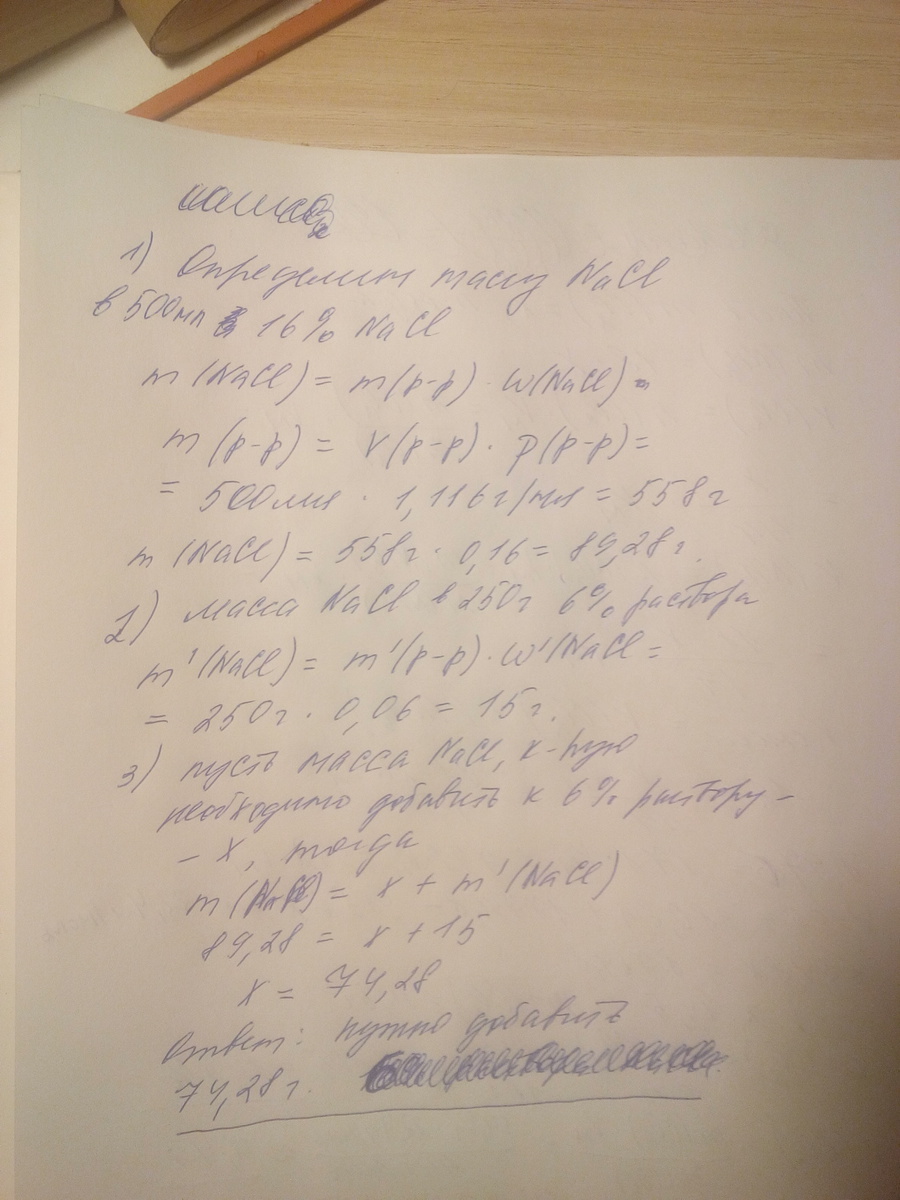 1) Определим массу NaCl
в 500мл 16% NaCl
m (NaCl) = m(р-р) · ω(NaCl) =
m (р-р) = V(р-р) · ρ(р-р) =
= 500мл · 1,116 г/мл = 558 г
m (NaCl) = 558г · 0,16 = 89,28 г.
2) Масса NaCl в 250г 6% раствора
m'(NaCl) = m'(р-р) · ω'(NaCl =
= 250г · 0,06 = 15 г.
3) пусть масса NaCl, к-рую
необходимо добавить к 6% раствору -
- x, тогда
m (NaCl) = x + m'(NaCl)
89,28 = x + 15
x = 74,28
Ответ: нужно добавить
74,28 г.